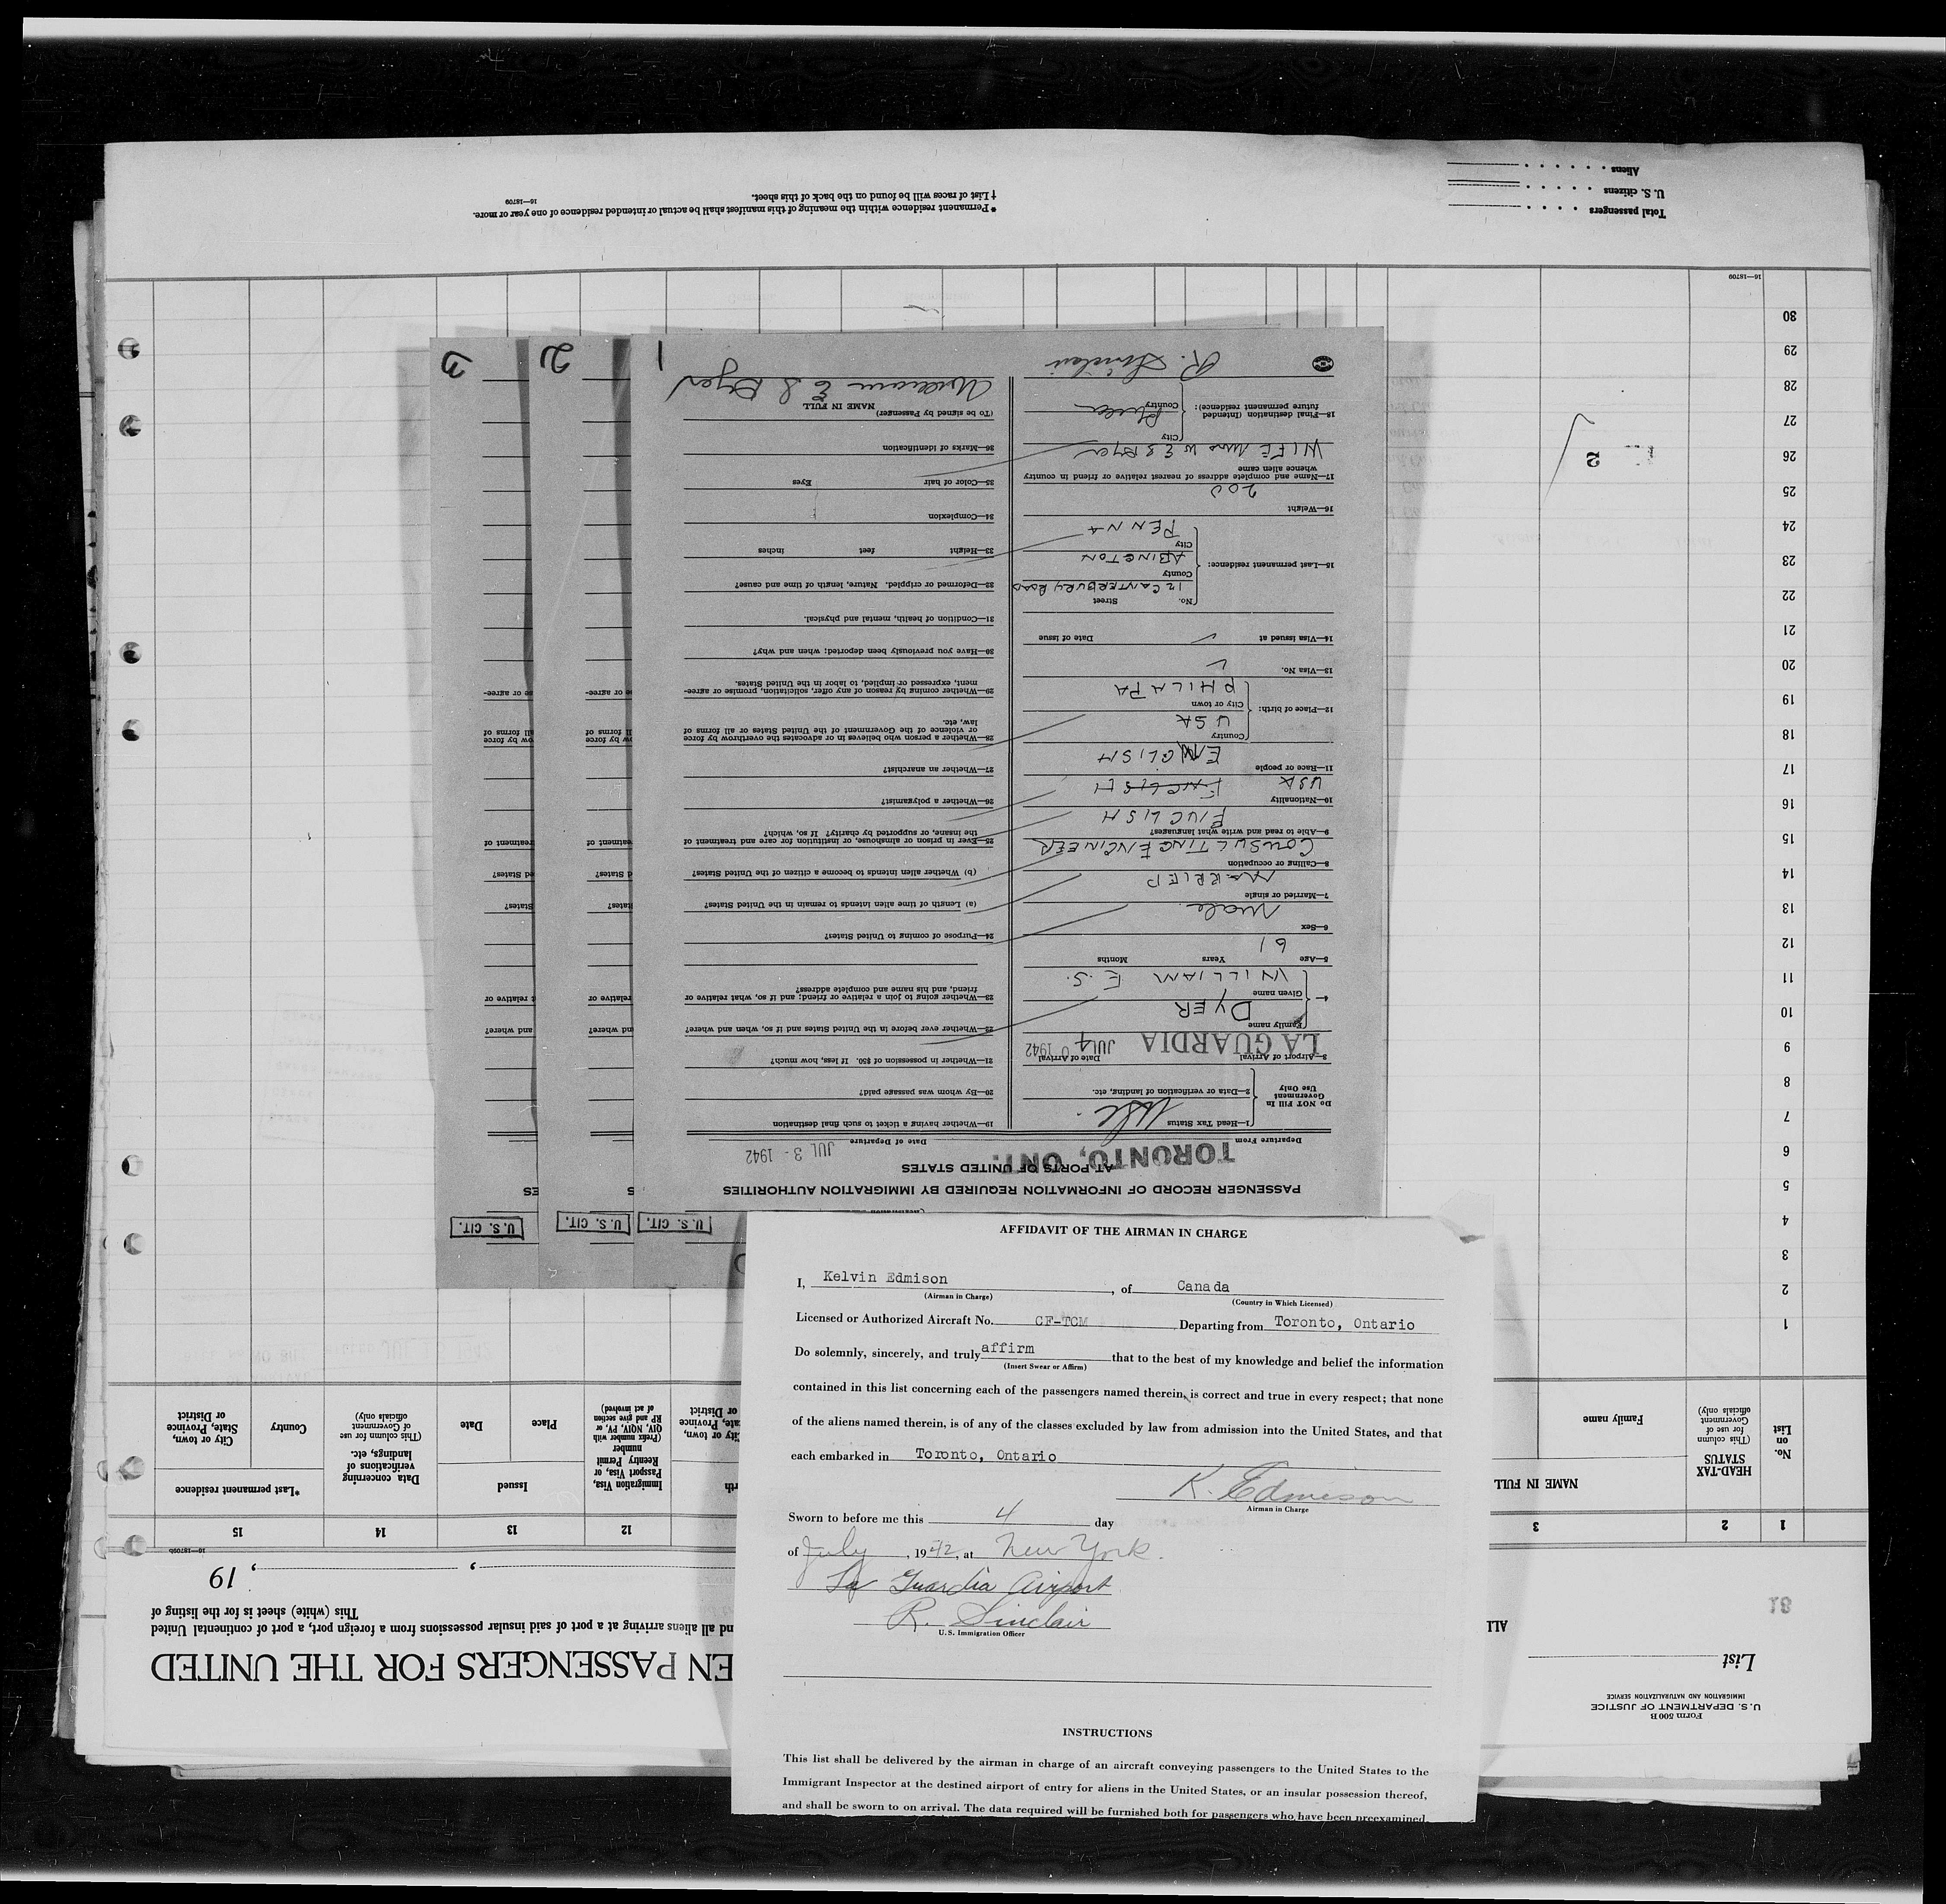 AFFIDAVIT OF THE AIRMAN IN CHARGE
I, Kelvin Edmison, of Canada
(Airman in Charge) (Country in Which Licensed)
Licensed or Authorized Aircraft No. CF-TCM Departing from Toronto, Ontario
Do solemnly, sincerely, and truly affirm that to the best of my knowledge and belief the information
(Insert Swear or Affirm)
contained in this list concerning each of the passengers named therein, is correct and true in every respect; that none
of the aliens named therein, is of any of the classes excluded by law from admission into the United States, and that
each embarked in Toronto, Ontario
K. Edmison
Airman in Charge
Sworn to before me this 4 day
of July, 1942, at New York.
La Guardia Airport
R. Sinclair
U.S. Immigration Officer
INSTRUCTIONS
This list shall be delivered by the airman in charge of an aircraft conveying passengers to the United States to the
Immigrant Inspector at the destined airport of entry for aliens in the United States, or an insular possession thereof,
and shall be sworn to on arrival. The data required will be furnished both for passengers who have been preexamined,
U.S. CIT.
U.S. CIT.
U.S. CIT.
PASSENGER RECORD OF INFORMATION REQUIRED BY IMMIGRATION AUTHORITIES
AT PORTS OF UNITED STATES
TORONTO, ONT. JUL 3 - 1942
Departure From Date of Departure
Do NOT Fill In
Government
Use Only
1—Head Tax Status USC
2—Data or verification of landing, etc.
3—Airport of Arrival Date of Arrival
LA GUARDIA JUL 4 1942
4— Family name DYER
Given name WILLIAM E. S.
5—Age Years Months
61
6—Sex Male
7—Married or single MARRIED
8—Calling or occupation CONSULTING ENGINEER
9—Able to read and write what languages? ENGLISH
10—Nationality USA ENGLISH
11—Race or people ENGLISH
12—Place of birth: Country USA
City or town PHILA PA
13—Visa No.
14—Visa issued at Date of issue
15—Last permanent residence: No. Street 12 CANTERBURY ROAD
County ABINGTON
City PENNA
16—Weight 200
17—Name and complete address of nearest relative or friend in country
whence alien came
WIFE Mrs W E S Dyer
18—Final destination (Intended
future permanent residence): City Phila
Country
R. Sinclair
19—Whether having a ticket to such final destination
20—By whom was passage paid?
21—Whether in possession of $50. If less, how much?
22—Whether ever before in the United States and if so, when and where?
23—Whether going to join a relative or friend; and if so, what relative or
friend, and his name and complete address?
24—Purpose of coming to United States?
(a) Length of time alien intends to remain in the United States?
(b) Whether alien intends to become a citizen of the United States?
25—Ever in prison or almshouse, or institution for care and treatment of
the insane, or supported by charity? If so, which?
26—Whether a polygamist?
27—Whether an anarchist?
28—Whether a person who believes in or advocates the overthrow by force
or violence of the Government of the United States or all forms of
law, etc.
29—Whether coming by reason of any offer, solicitation, promise or agree-
ment, expressed or implied, to labor in the United States.
30—Have you previously been deported; when and why?
31—Condition of health, mental and physical.
32—Deformed or crippled. Nature, length of time and cause?
33—Height feet inches
34—Complexion
35—Color of hair Eyes
36—Marks of identification
NAME IN FULL
(To be signed by Passenger)
William E S Dyer
1
2
3
Form 500 B
U. S. DEPARTMENT OF JUSTICE
IMMIGRATION AND NATURALIZATION SERVICE
List
81
ALL
EN PASSENGERS FOR THE UNITED
nd all aliens arriving at a port of said insular possessions from a foreign port, a port of continental United
This (white) sheet is for the listing of
, , 19
16—18709b
1 2 3 12 13 14 15
No.
on
List
HEAD-TAX
STATUS
(This column
for use of
Government
officials only)
NAME IN FULL
Family name
Immigration Visa,
Passport Visa, or
Reentry Permit
number
(Prefix number with
QIV, NQIV, PV, or
RP and give section
of act involved)
Issued
Place Date
Data concerning
verifications of
landings, etc.
(This column for use
of Government
officials only)
*Last permanent residence
Country
City or town,
State, Province
or District
1
2
3
4
5
6
7
8
9
10
11
12
13
14
15
16
17
18
19
20
21
22
23
24
25
26
27
28
29
30
2
16—18709
Total passengers
U. S. citizens
Aliens
* Permanent residence within the meaning of this manifest shall be actual or intended residence of one year or more.
† List of races will be found on the back of this sheet.
16—18709